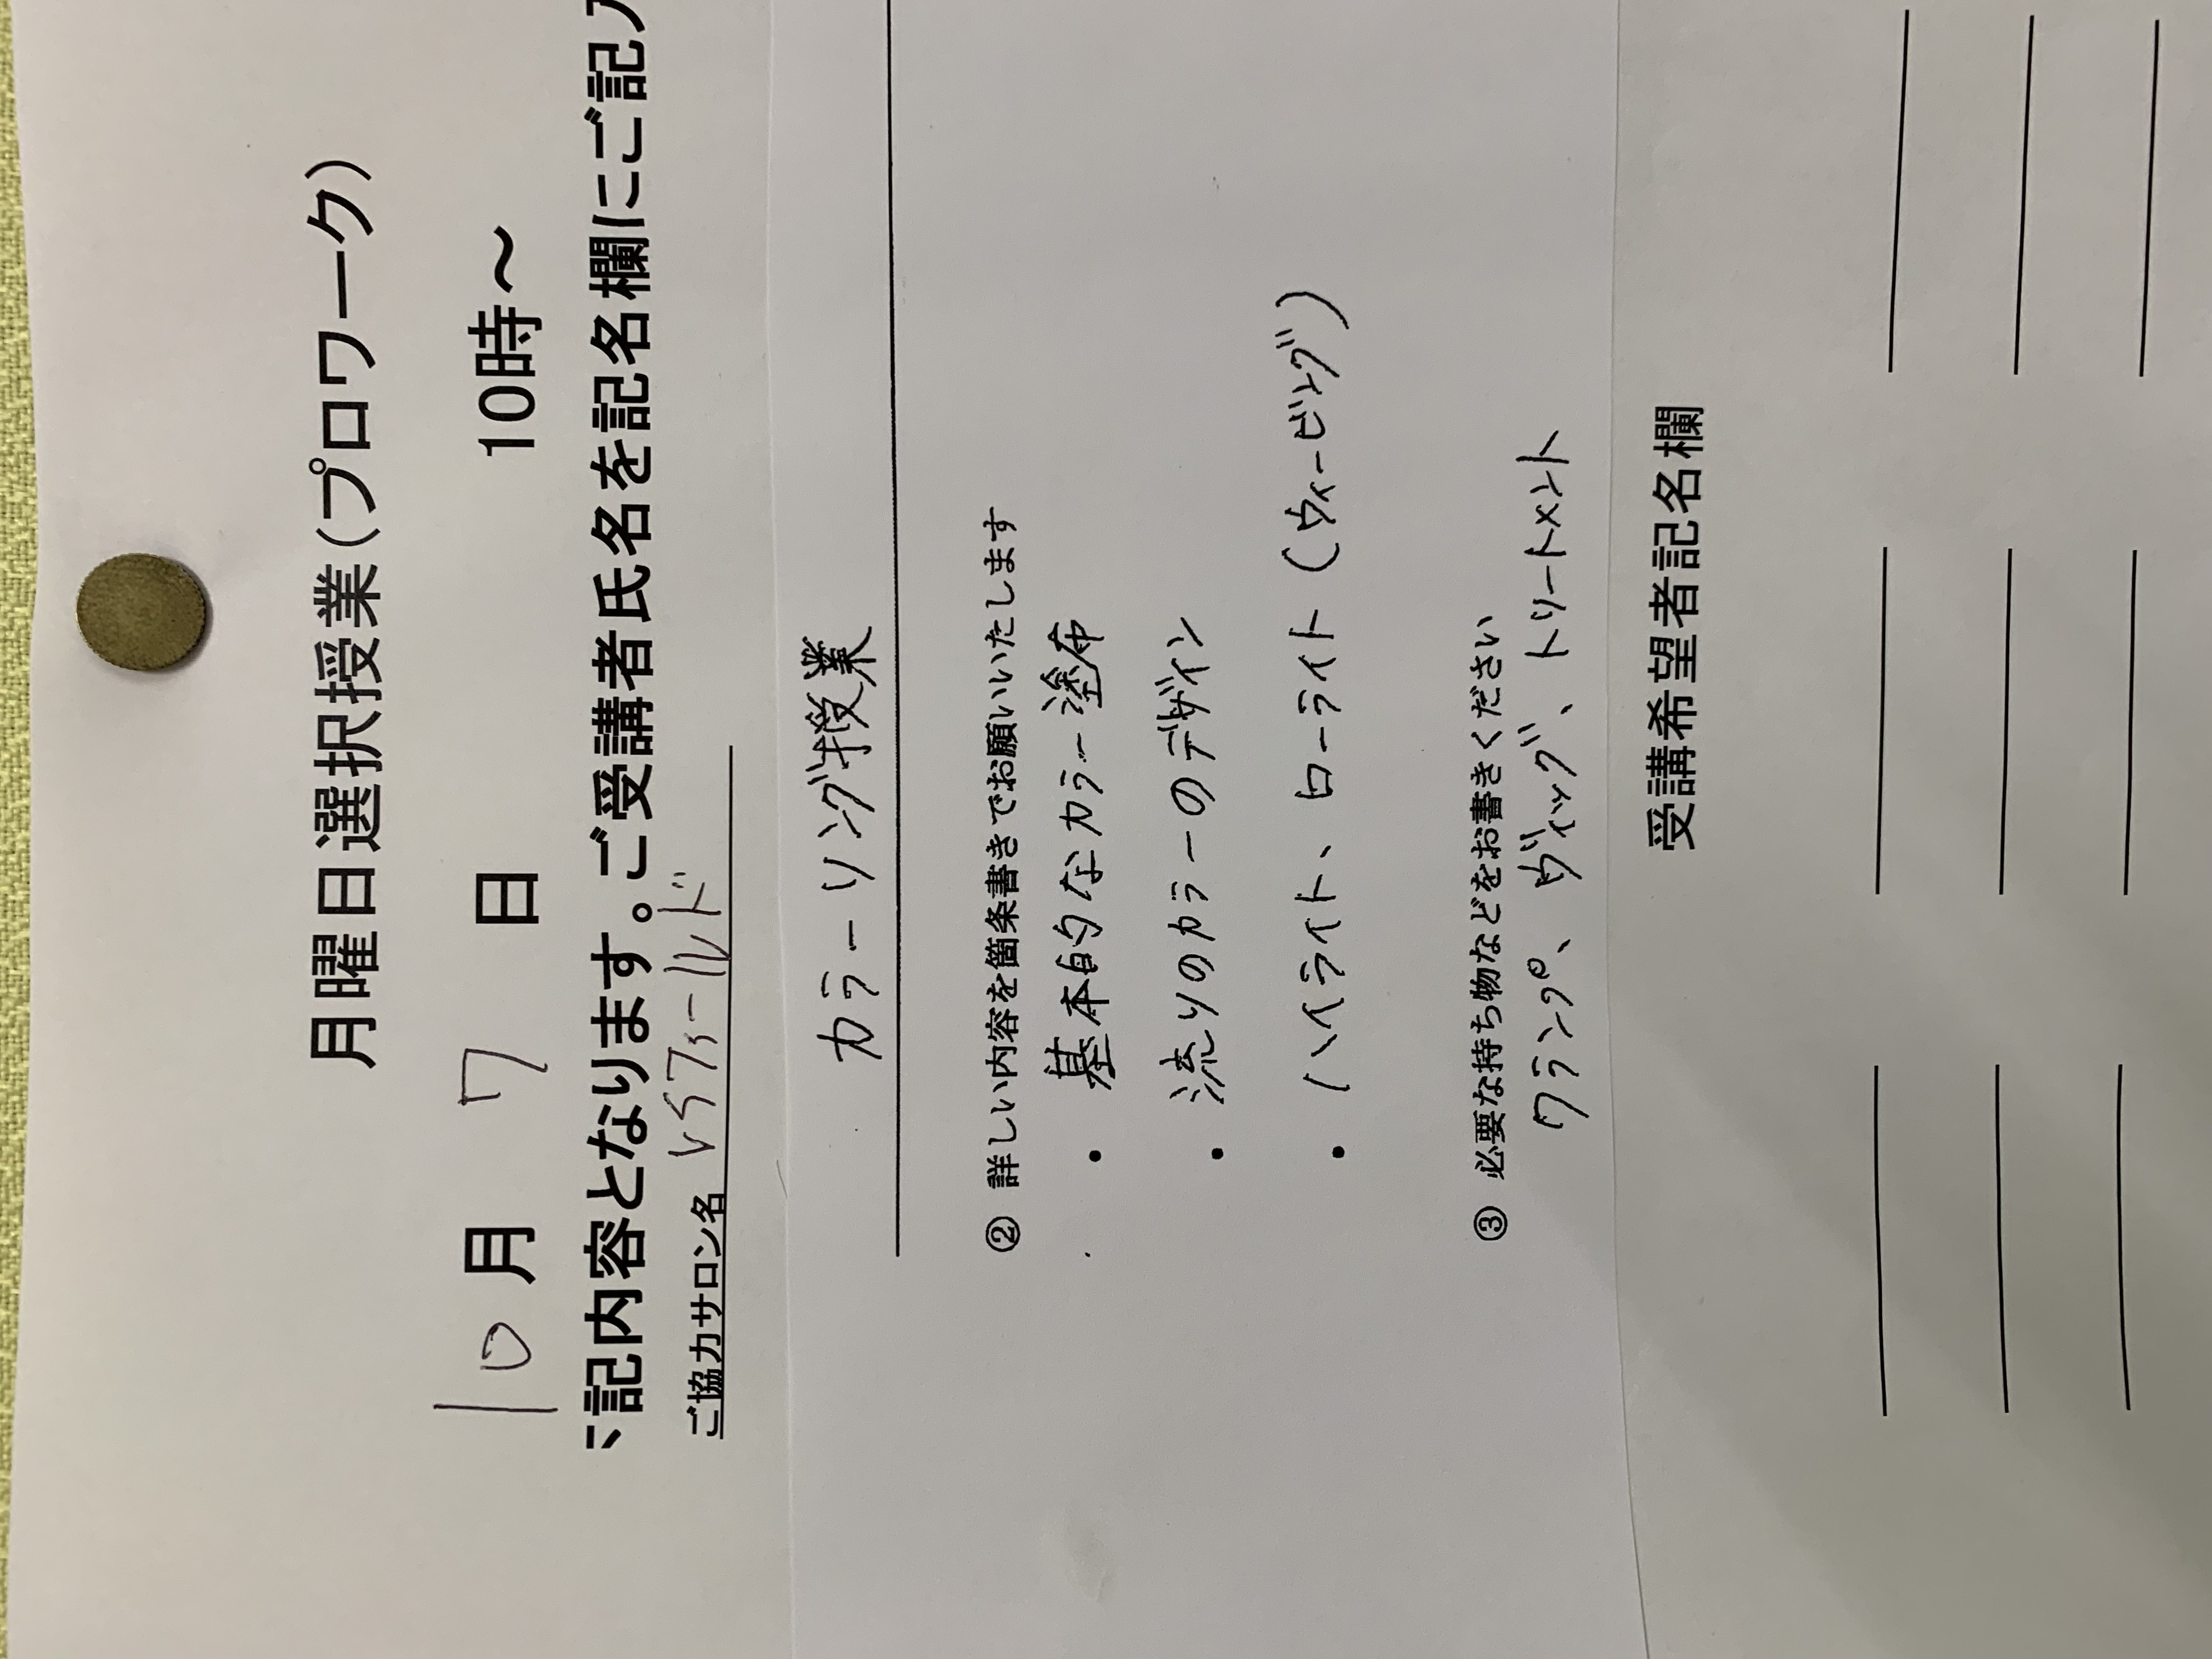 月曜日選択授業（プロワーク）
10月 7 日 10時～
記内容となります。ご受講者氏名を記名欄にご記入
ご協力サロン名
カラーリング授業
② 詳しい内容を箇条書きでお願いいたします
・ 基本的なカラー塗布
・ 流りのカラーのデザイン
・ ハイライト、ローライト（ウィービング）
③ 必要な持ち物などをお書きください
クランプ、ウィッグ、トリートメント
受講希望者記名欄